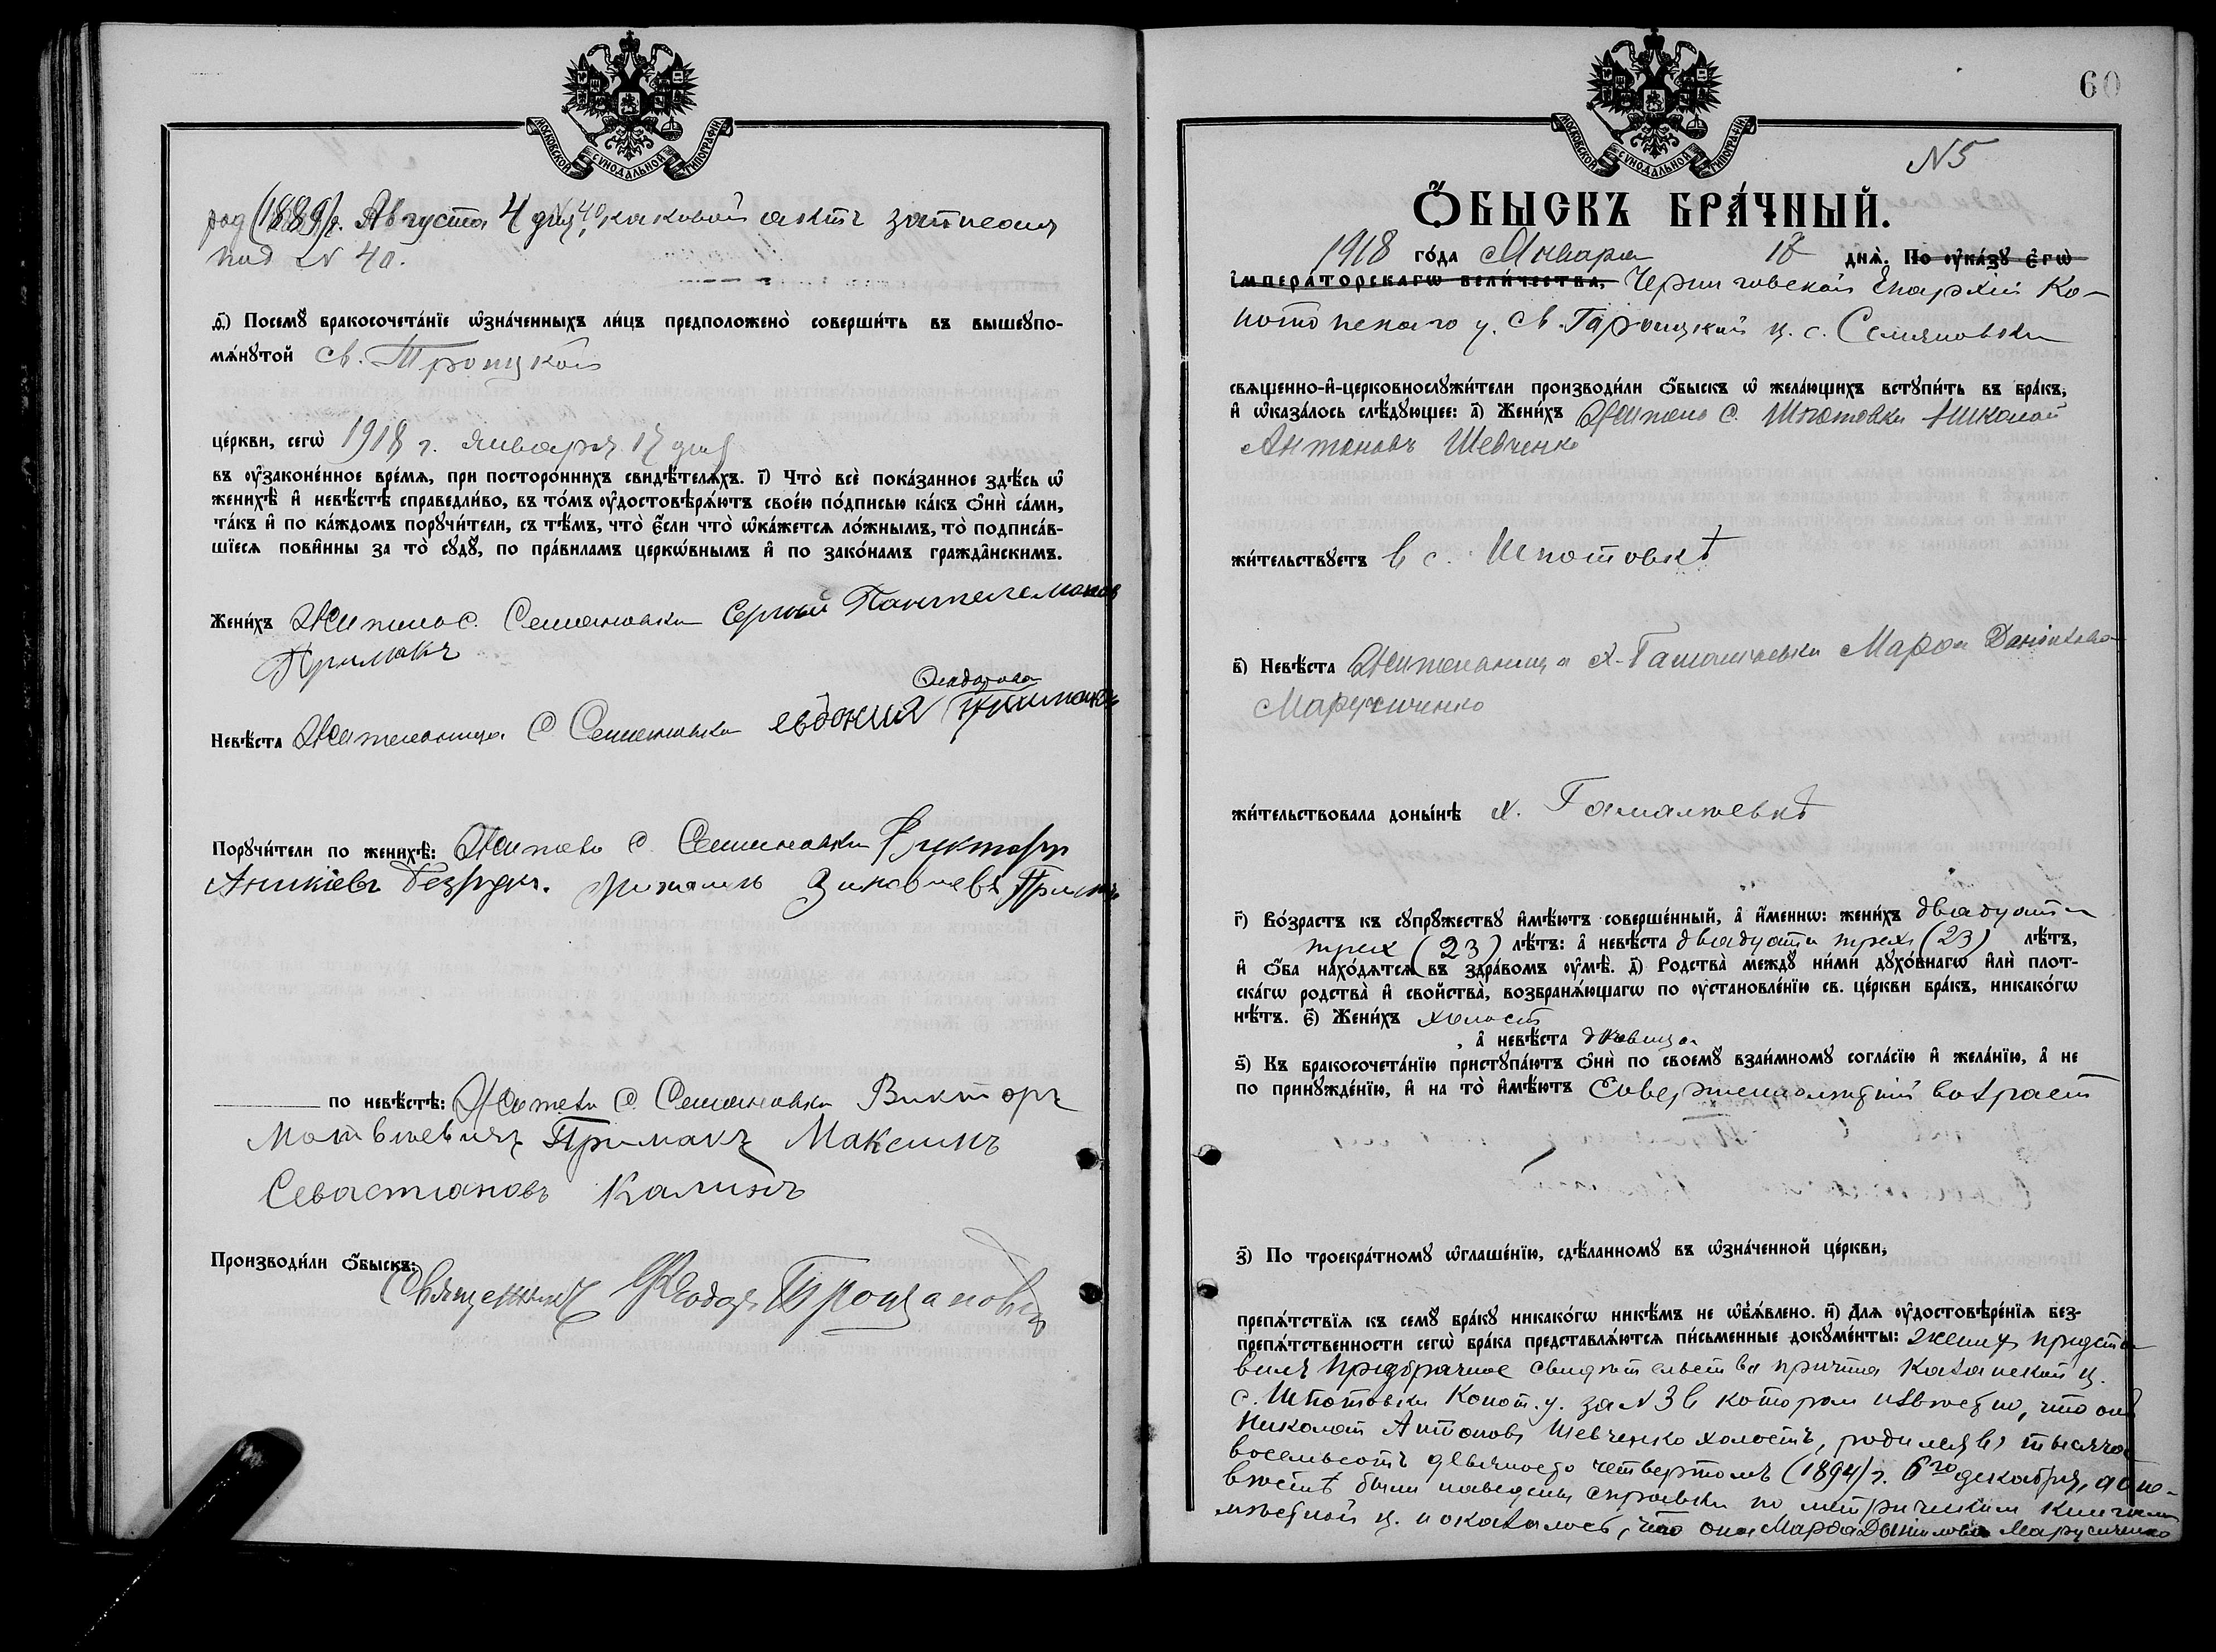 МОСКОВСКОЙ СѴНОДАЛЬНОЙ ТИПОГРАФІИ
(1889)г. Августа 4 дня, каковой актъ записанъ
под N 40.
д҃) Посемꙋ̀ бракосочета́нїе ѡ҆зна́ченныхъ ли́цъ предположено̀ соверши́ть въ вышеꙋпо-
мѧ́нꙋтой св. Троицкой
це́ркви, сегѡ̀ 1918 г. января 17 дня
въ ᲂу҆законе́нное вре́мѧ, при посторо́ннихъ свидѣ́телѧхъ. і҃) Что̀ всѐ пока́занное здѣ́сь ѡ҆
женихѣ̀ и҆ невѣ́стѣ справедли́во, въ то́мъ ᲂу҆достовѣрѧ́ютъ свое́ю по́дписью ка́къ ѻ҆нѝ са́ми,
та́къ и҆ по ка́ждомъ порꙋчи́тели, съ тѣ́мъ, что̀ є҆́сли что̀ ѡ҆ка́жетсѧ ло́жнымъ, то̀ подписа́в-
шїесѧ пови́нны за то̀ сꙋдꙋ̀, по пра́виламъ церкѡ́внымъ и҆ по зако́намъ гражда̂нскимъ.
Жени́хъ Житель с. Семяновки Сергій Пантелемонов
Примакъ
Федорова
Невѣ́ста Жителница С Семяновки евдокия
Порꙋчи́тели по женихѣ̀: Житель с. Семяновки Виктор
Аникіевъ Безрукъ. Зиновиевъ Примакъ
по невѣ́стѣ: Житель С. Семяновки Викторъ
Матвѣевичъ Примакъ Максимъ
Севастиановъ Калинъ
Производи́ли ѻ҆́быскъ:
Священникъ Ѳеодоръ Троцановскій
60
МОСКОВСКОЙ СѴНОДАЛЬНОЙ ТИПОГРАФІИ
N5
Ѻ҆́БЫСКЪ БРА́ЧНЫЙ.
1918 го́да Января 17 днѧ̀. По ᲂу҆ка́зꙋ є҆гѡ̀
і҆мпера́торскагѡ вели́чества, Черниговской Епархіи Ко-
нотопскаго у. Св. Троицкой ц. с. Семяновки
свѧще́нно-и҆-церковнослꙋжи́тели производи́ли ѻ҆́быскъ ѡ҆ жела́ющихъ встꙋпи́ть въ бра́къ,
и҆ ѡ҆каза́лось слѣ́дꙋющее: а҃) Жени́хъ Житель с. Шпотовки Николай
Антоновъ Шевченко
жи́тельствꙋетъ в с. Шпотовкѣ
в҃) Невѣ́ста Жителница х. Гамалѣевки Марѳа Даніилова
Марусиченко
жи́тельствовала доны́нѣ х. Гамалѣевкѣ
г҃) Во́зрастъ къ сꙋпрꙋ́жествꙋ и҆мѣ́ютъ соверше́нный, а҆ и҆́меннѡ: жени́хъ двадцати
трех (23) лѣ́тъ: а҆ невѣ́ста двадцати трехъ (23) лѣ́тъ,
и҆ ѻ҆́ба нахо́дѧтсѧ въ здра́вомъ ᲂу҆мѣ̀. д҃) Родства̀ междꙋ̀ ни́ми дꙋхо́внагѡ и҆лѝ плот-
ска́гѡ родства̀ и҆ свойства̀, возбранѧ́ющагѡ по ᲂустановле́нїю св. це́ркви бра́къ, никако́гѡ
нѣ́тъ. є҃) Жени́хъ холост
, а҆ невѣ́ста дѣвица
ѕ҃) Къ бракосочета́нїю пристꙋпа́ютъ ѻ҆нѝ по своемꙋ̀ взаи́мномꙋ согла́сїю и҆ жела́нїю, а҆ не
по принꙋжде́нїю, и҆ на то̀ и҆мѣ́ютъ Совершеннолѣтній возраст
з҃) По троекра́тномꙋ ѡ҆глаше́нїю, сдѣ́ланномꙋ въ ѡ҆зна́ченной це́ркви,
препѧ́тствїѧ къ семꙋ̀ бра́кꙋ никако́гѡ никѣ́мъ не ѡ҆б̾ѧ́влено. и҃) Длѧ ᲂу҆достовѣре́нїѧ без-
препѧ́тственности сегѡ̀ бра́ка представлѧ́ютсѧ пи́сьменные докꙋме́нты: жених предста
вилъ предбрачное свидѣтельство причта Казанской ц.
с. Шпотовки Конот. у. за N 3 в котором извѣстно, что онъ
Николай Антоновъ Шевченко холостъ, родился въ тысяча
восемьсотъ девяносто четвертомъ (1894) г. 6го декабря, а о не-
вѣстѣ были наведены справки по метрическим книгам
мѣстной ц. и оказалось, что она Марѳа Даниловна Марусиченко